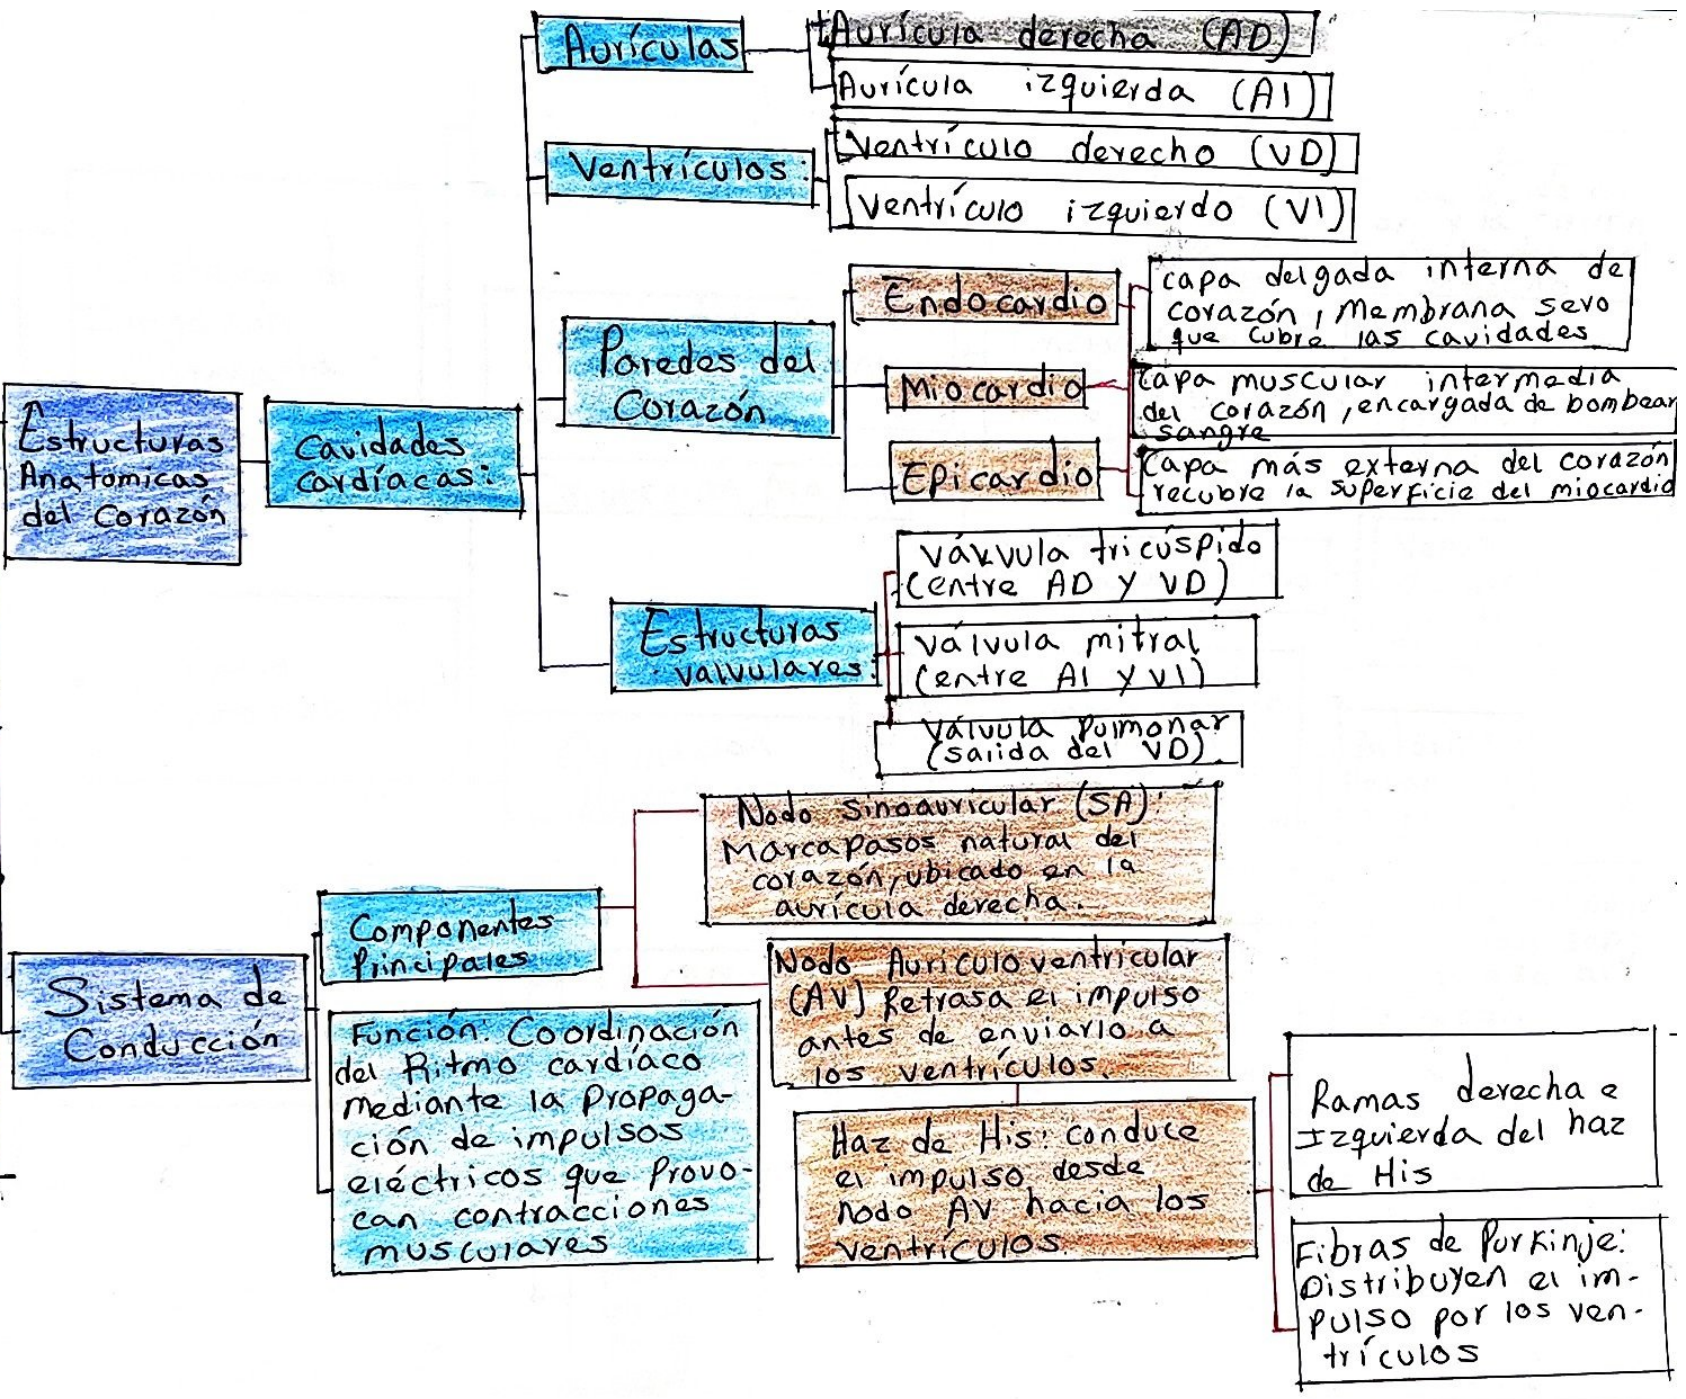 Aurículas
Aurícula derecha (AD)
Aurícula izquierda (AI)
Ventrículos:
Ventrículo derecho (VD)
Ventrículo izquierdo (VI)
Estructuras
Anatomicas
del Corazón
Cavidades
cardíacas:
Paredes del
Corazón
Endocardio
capa delgada interna de
corazón, Membrana sero
que cubre las cavidades
Miocardio
Capa muscular intermedia
del corazón, encargada de bombear
sangre
Epicardio
Capa más externa del corazón
recubre la superficie del miocardio
Estructuras
valvulares:
Válvula tricúspido
(entre AD y VD)
Válvula mitral
(entre AI y VI)
Válvula Pulmonar
(salida del VD).
Sistema de
Conducción
Componentes
Principales
Nodo Sinoauricular (SA):
Marcapasos natural del
corazón, ubicado en la
aurícula derecha.
Nodo Auriculoventricular
(AV) Retrasa el impulso
antes de enviarlo a
los ventrículos.
Haz de His: conduce
el impulso desde
nodo AV hacia los
ventrículos.
Ramas derecha e
Izquierda del haz
de His
Fibras de Purkinje:
Distribuyen el im-
pulso por los ven-
trículos
Función: Coordinación
del Ritmo cardíaco
mediante la Propaga-
ción de impulsos
eléctricos que Provo-
can contracciones
musculares